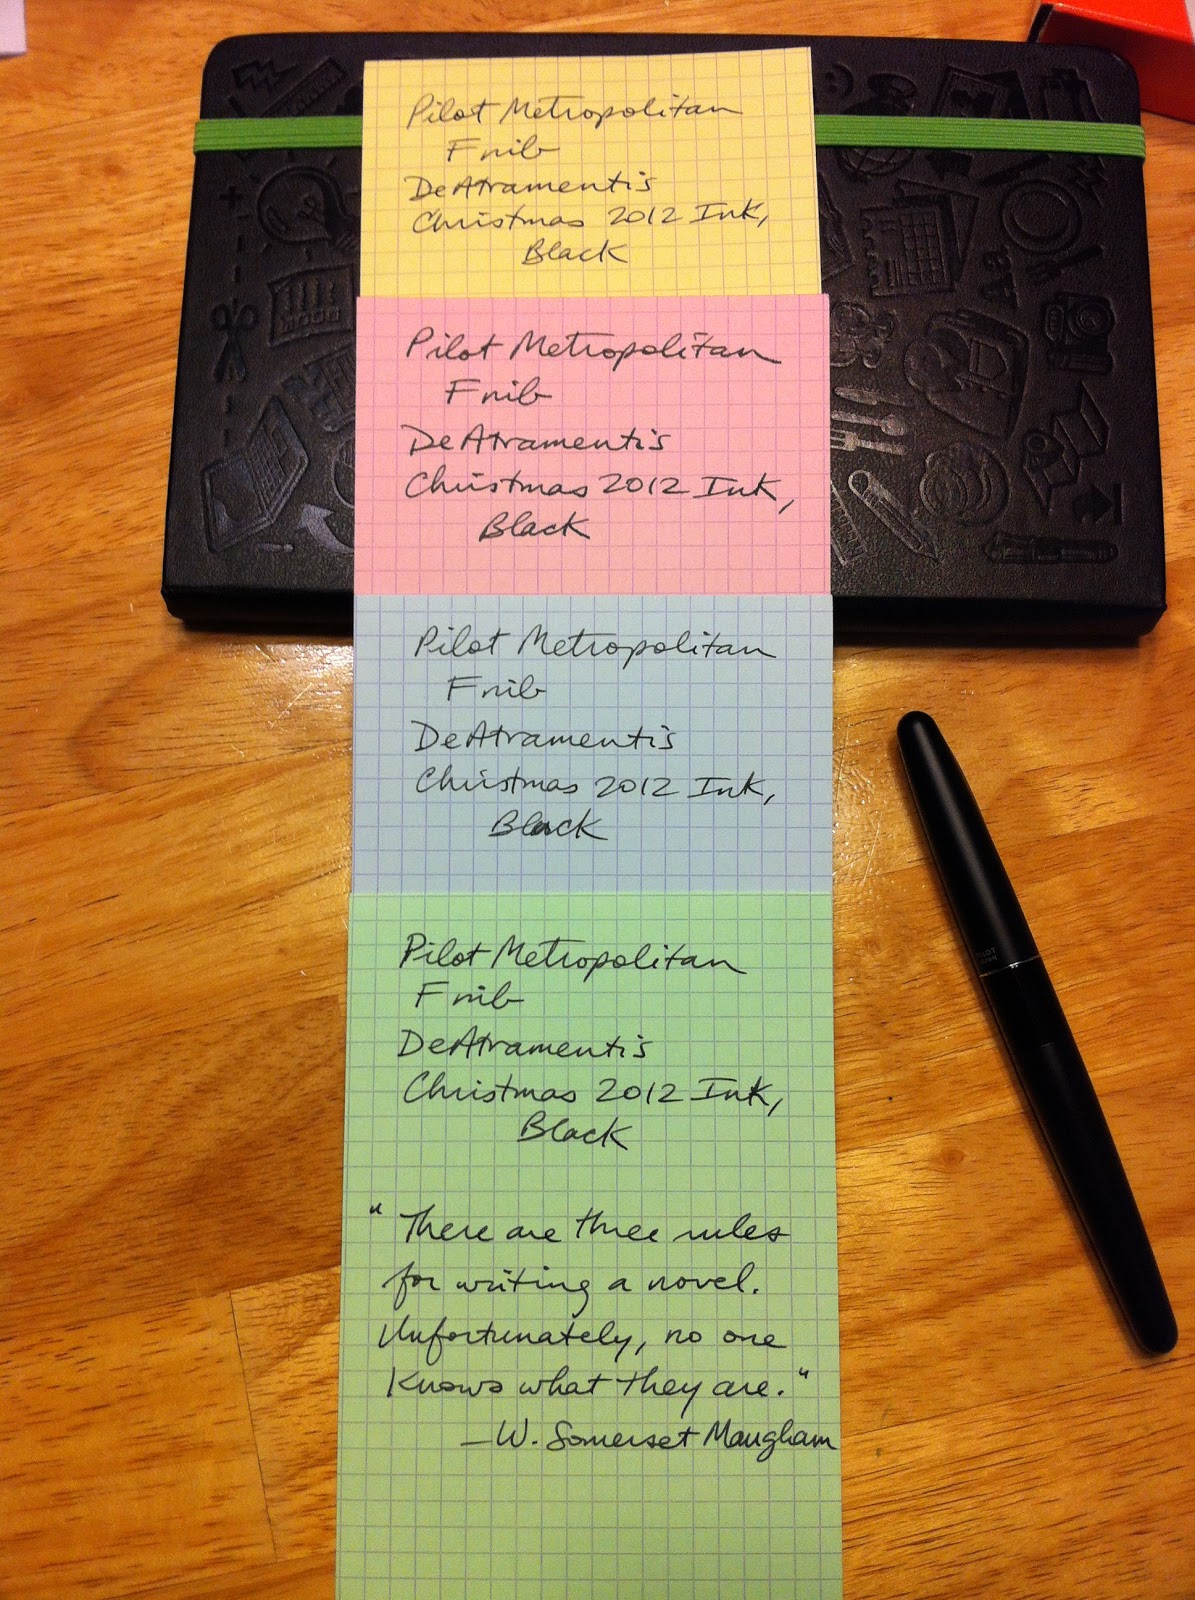 Pilot Metropolitan
F nib
DeAtramentis
Christmas 2012 Ink,
Black
Pilot Metropolitan
F nib
DeAtramentis
Christmas 2012 Ink,
Black
Pilot Metropolitan
F nib
DeAtramentis
Christmas 2012 Ink,
Black
Pilot Metropolitan
F nib
DeAtramentis
Christmas 2012 Ink,
Black
"There are three rules
for writing a novel.
Unfortunately, no one
knows what they are."
—W. Somerset Maugham
Aa
PILOT